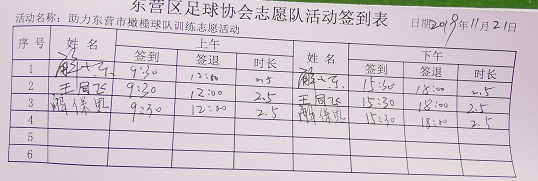 东营区足球协会志愿队活动签到表
活动名称：助力东营市橄榄球队训练志愿活动 日期2019年11月21日
序号 姓名 上午 姓名 下午
签到 签退 时长 签到 签退 时长
1 9:30 12:00 2.5 15:30 18:00 2.5
2 9:30 12:00 2.5 15:30 18:00 2.5
3 解保凤 9:30 12:00 2.5 解保凤 15:30 18:00 2.5
4
5
6